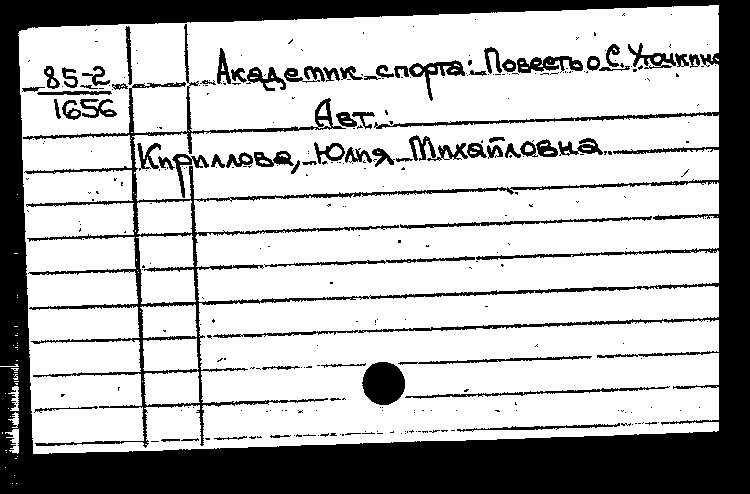 85-2
1656
Академик спорта: Повесть о С. Уточкине
Авт.:
Кириллова, Юлия Михайловна